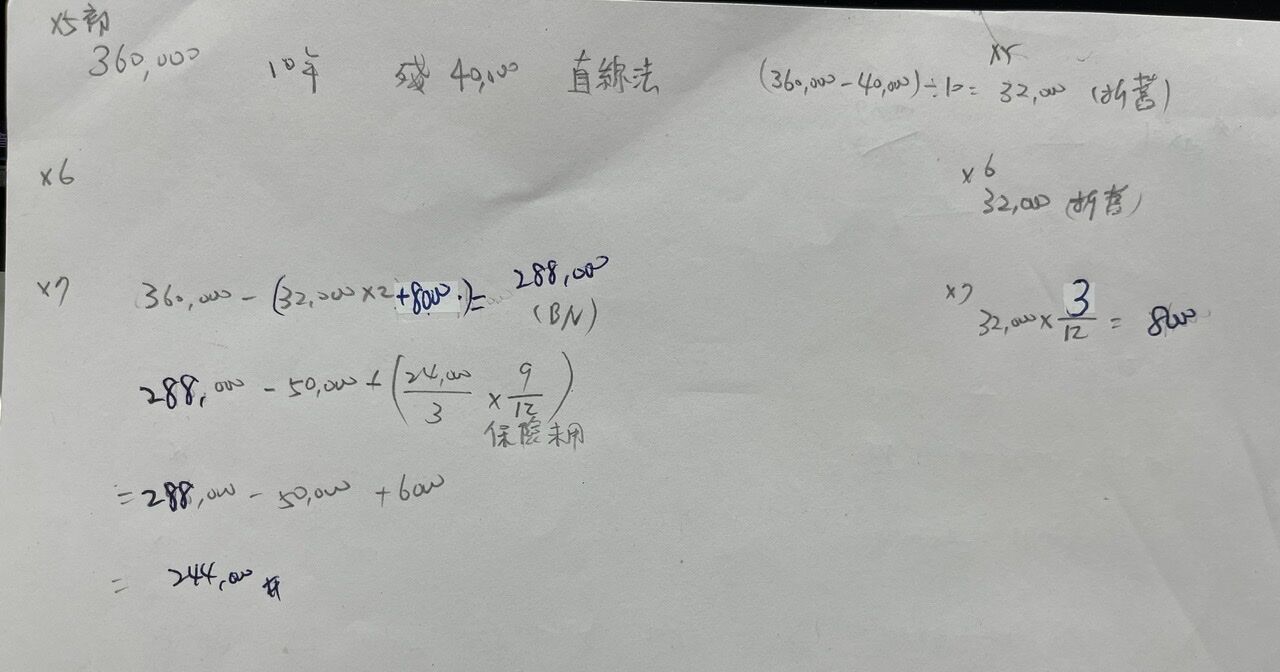 X5初
360,000 10年 殘 40,000 直線法
X5
(360,000-40,000)÷10= 32,000 (折舊)
X6
X6
32,000 (折舊)
X7
360,000-(32,000×2+8000.)= 288,000
(BV)
X7
32,000× 3/12 = 8000
288,000 - 50,000 + (24,000/3 × 9/12)
保險未用
=288,000 - 50,000 + 6000
= 244,000 #